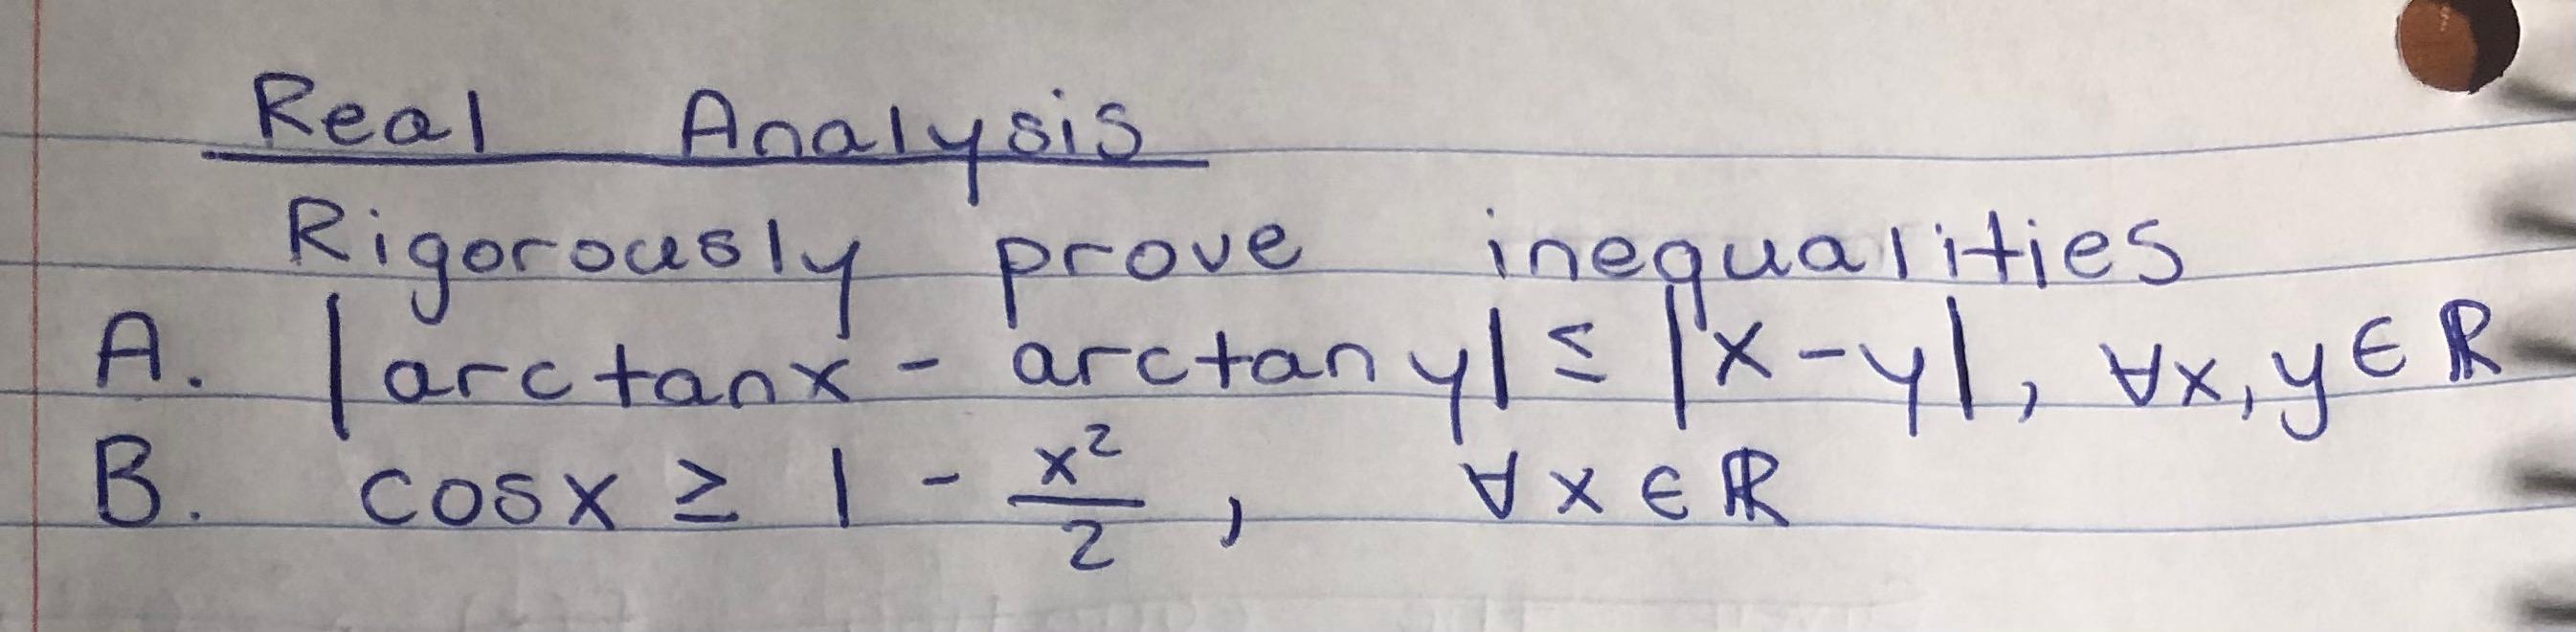 Real Analysis
Rigorously prove inequalities
A. |arctanx - arctan y| ≤ |x-y|, ∀x, y ∈ ℝ
B. cosx ≥ 1 - x²/2, ∀x ∈ ℝ